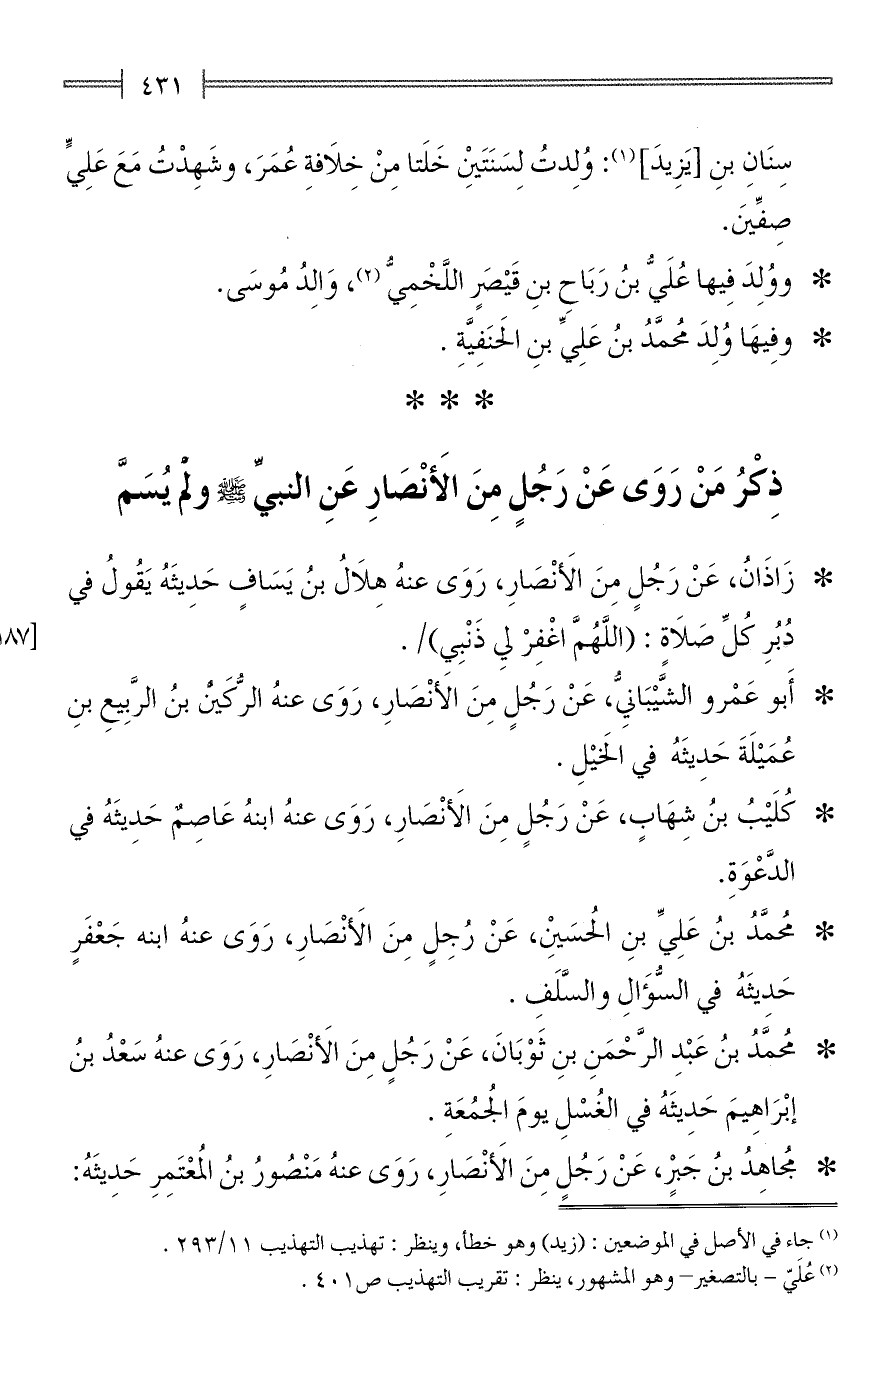 ٤٣١
سِنَانِ بنِ [يَزِيدَ](١): وُلِدتُ لِسَنَتَيْنِ خَلَتا مِنْ خِلَافةِ عُمَرَ، وشَهِدْتُ مَعَ عَلِيٍّ
صِفِّينَ.
* ووُلِدَ فِيها عُلَيُّ بنُ رَبَاحِ بنِ قَيْصَرٍ اللَّخْمِيُّ(٢)، وَالِدُ مُوسَى.
* وفِيهَا وُلِدَ مُحمَّدُ بنُ عَلِيِّ بنِ الحَنَفِيَّةِ .
* * *
ذِكْرُ مَنْ رَوَى عَنْ رَجُلٍ مِنَ الأَنْصَارِ عَنِ النبيِّ ﷺ ولَمْ يُسَمَّ
* زَاذَانُ، عَنْ رَجُلٍ مِنَ الأَنْصَارِ، رَوَى عنهُ هِلَالُ بنُ يَسَافٍ حَدِيثَهُ يَقُولُ في
دُبُرِ كُلِّ صَلَاةٍ : (اللَّهُمَّ اغْفِرْ لِي ذَنْبِي)/ .
١٨٧]
* أَبو عَمْرو الشَّيْبَانيُّ، عَنْ رَجُلٍ مِنَ الأَنْصَارِ، رَوَى عنهُ الرُّكَيْنُ بنُ الرَّبِيعِ بنِ
عُمَيْلَةَ حَدِيثَهُ في الخَيْلِ .
* كُلَيْبُ بنُ شِهَابٍ، عَنْ رَجُلٍ مِنَ الأَنْصَارِ، رَوَى عنهُ ابنهُ عَاصِمٌ حَدِيثَهُ في
الدَّعْوَةِ.
* مُحمَّدُ بنُ عَلِيِّ بنِ الحُسَيْنِ، عَنْ رُجِلٍ مِنَ الأَنْصَارِ، رَوَى عنهُ ابنه جَعْفَرٍ
حَدِيثَهُ في السُّؤَالِ والسَّلَفِ .
* مُحمَّدُ بنُ عَبْدِ الرَّحْمَنِ بنِ ثَوْبَانَ، عَنْ رَجُلٍ مِنَ الأَنْصَارِ، رَوَى عنهُ سَعْدُ بنُ
إبْرَاهِيمَ حَدِيثَهُ في الغُسْلِ يومَ الجُمُعَةِ .
* مُجاهِدُ بنُ جَبْرٍ، عَنْ رَجُلٍ مِنَ الأَنْصَارِ، رَوَى عنهُ مَنْصُورُ بنُ المُعْتَمِرِ حَدِيثَهُ:
(١) جاء في الأصل في الموضعين : (زيد) وهو خطأ، وينظر : تهذيب التهذيب ٢٩٣/١١ .
(٢) عُلَيّ – بالتصغير– وهو المشهور، ينظر : تقريب التهذيب ص٤٠١ .